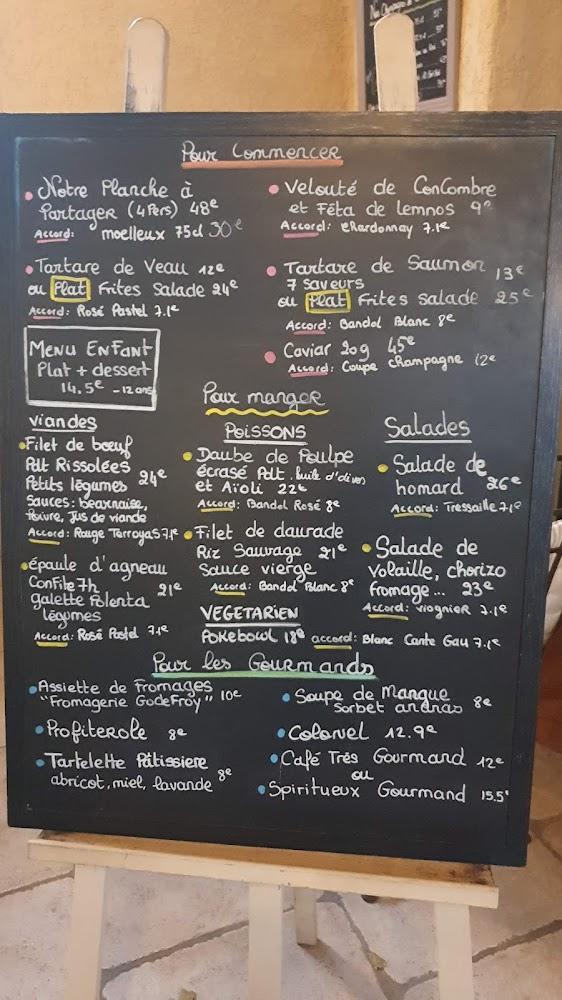 Pour Commencer
Notre Planche à
Partager (4 Pers) 48€
Accord: moelleux 75cl 30€
Tartare de Veau 12€
ou Plat Frites Salade 24€
Accord: Rosé Pastel 7.1€
MENU ENFANT
Plat + dessert
14,5€ -12 ans
Velouté de Concombre
et Féta de Lemnos 9€
Accord: Chardonnay 7.1€
Tartare de Saumon 13€
7 saveurs
ou Plat Frites Salade 25€
Accord: Bandol Blanc 8€
Caviar 20g 45€
Accord: Coupe Champagne 12€
Pour manger
Viandes
Filet de bœuf
Pdt Rissolées
Petits légumes 24€
Sauces: bearnaise,
Poivre, Jus de viande
Accord: Rouge Terroyas 7.1€
épaule d'agneau
Confite 7h 21€
galette Polenta
légumes
Accord: Rosé Pastel 7.1€
POISSONS
Daube de Poulpe
écrasé Pdt, huile d'olives
et Aïoli 22€
Accord: Bandol Rosé 8€
Filet de daurade
Riz Sauvage 21€
Sauce vierge
Accord: Bandol Blanc 8€
VEGETARIEN
Pokebowl 18€ accord: Blanc Cante Gau 7.1€
Salades
Salade de
homard 26€
Accord: Tressaille 7.1€
Salade de
Volaille, chorizo
fromage... 23€
Accord: viognier 7.1€
Pour les Gourmands
Assiette de Fromages
"Fromagerie Godefroy" 10€
Profiterole 8€
Tartelette Pâtissiere
abricot, miel, lavande 8€
Soupe de Mangue
Sorbet ananas 8€
Colonel 12.9€
Café Très Gourmand 12€
ou
Spiritueux Gourmand 15.5€